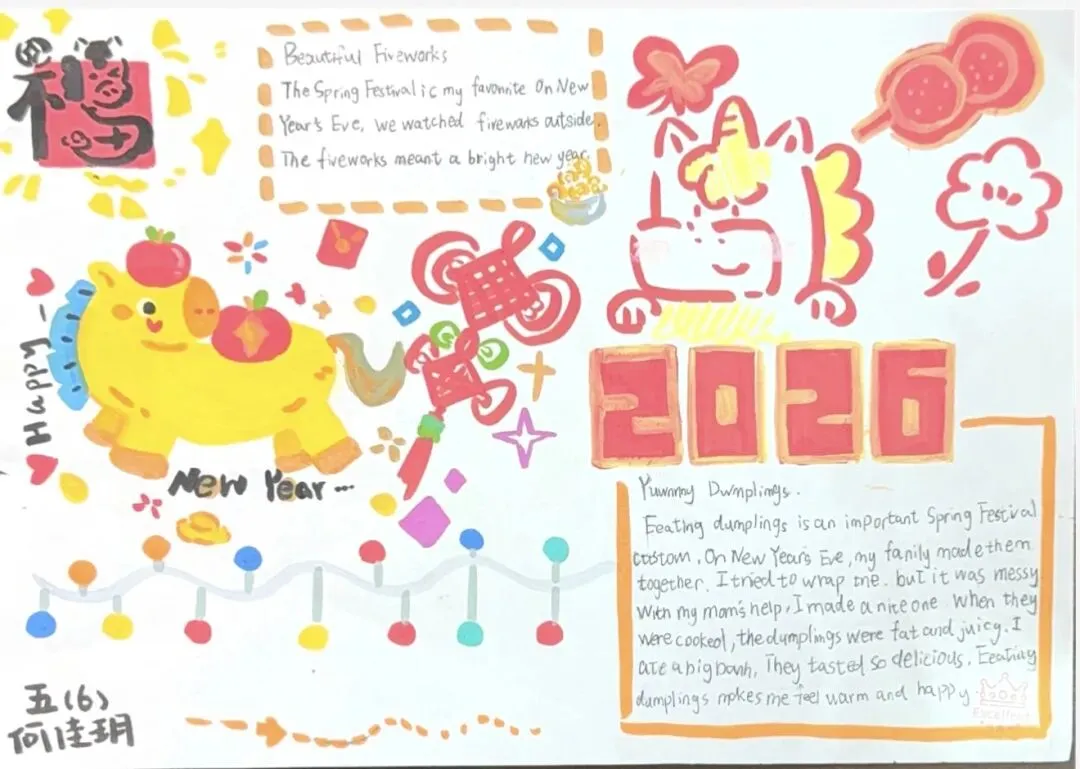 福
Beautiful Fireworks
The Spring Festival is my favorite On New
Year's Eve, we watched fireworks outside.
The fireworks meant a bright new year.
Happy
New Year...
2026
Yummy Dumplings.
Eeating dumplings is an important Spring Festival
custom. On New Year's Eve, my family made them
together. I tried to wrap one. but it was messy
With my mom's help, I made a nice one When they
were cooked, the dumplings were fat and juicy. I
ate a big bowh, They tasted so delicious. Eeating
dumplings makes me feel warm and happy
Excellent
五(6)
何佳玥